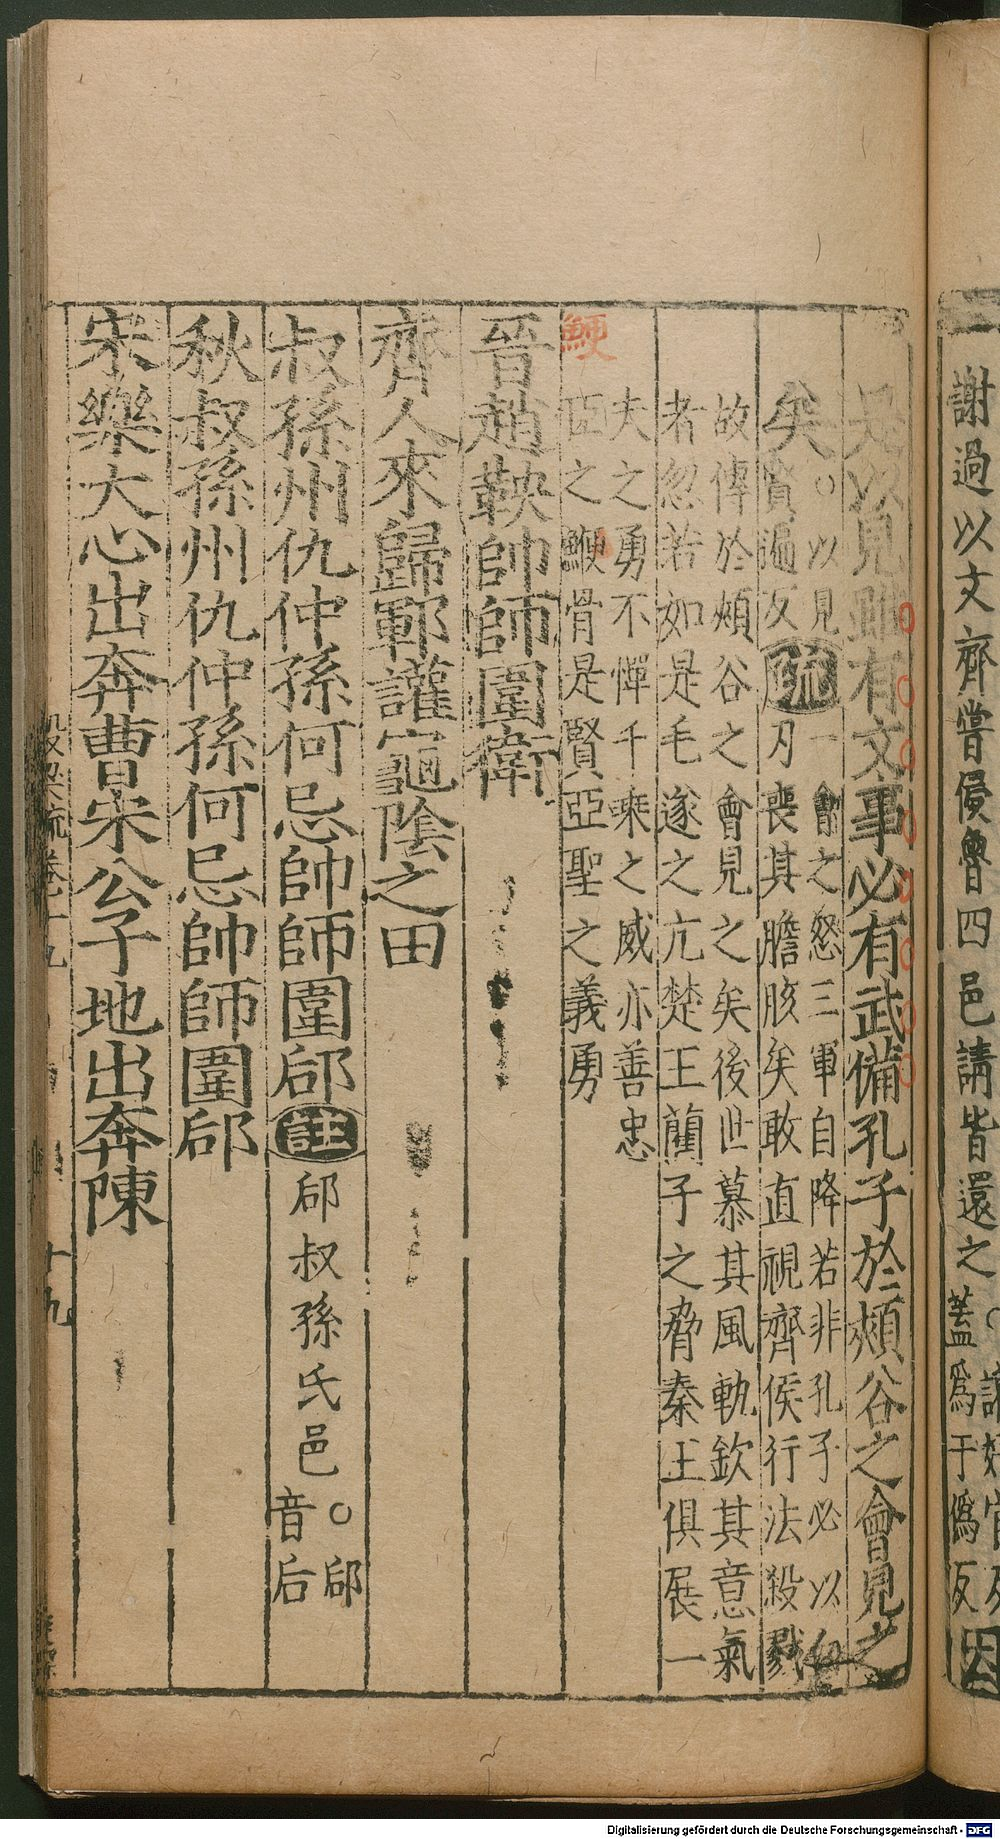 謝過以文齊嘗侵魯四邑請皆還之
蓋爲于僞反
因是以見雖有文事必有武備孔子於頰谷之會見之
矣○以見
賢遍反
疏
一會之怒三軍自降若非孔子必以白
刃喪其膽胲矣敢直視齊侯行法殺戮
故傳於頰谷之會見之矣後世慕其風軌欽其意氣
者忽若如是毛遂之亢楚王藺子之脅秦王俱展一
夫之勇不憚千乘之威亦善忠
臣之鯁骨是賢亞聖之義勇
鯁
晉趙鞅帥師圍衛
齊人來歸鄆讙龜陰之田
叔孫州仇仲孫何忌帥師圍郈
註
郈叔孫氏邑○郈
音后
秋叔孫州仇仲孫何忌帥師圍郈
宋樂大心出奔曹宋公子地出奔陳
穀梁疏卷十九
十九
Digitalisierung gefördert durch die Deutsche Forschungsgemeinschaft - DFG